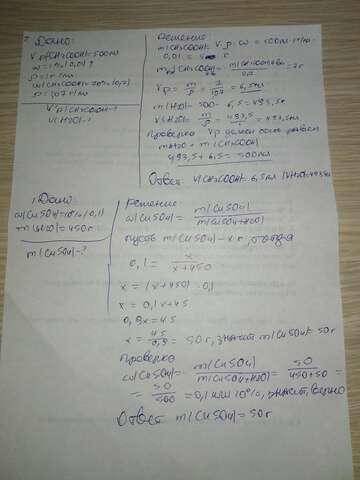 Дано:
V р(CH3COOH)=500мл
w=1% (0,01)
ρ=1г/мл
w(CH3COOH)=70% (0,7)
ρ=1,07 г/мл
V р(CH3COOH)-?
V(H2O)-?
Решение
m(CH3COOH)=V·ρ·w=500мл·1г/мл·
0,01=
V р=m/ρ=7/1,07=6,5мл
m(H2O)=500-6,5=493,5г
V(H2O)=m/ρ=493,5/1=493,5мл
Проверка Vр должен быть равен
mH2O+m(CH3COOH)
493,5+6,5=500мл
Ответ: V(CH3COOH)=6,5мл V(H2O)=493,5мл
1. Дано
w(CuSO4)=10% (0,1)
m(H2O)=450г
m(CuSO4)-?
Решение
w(CuSO4)=m(CuSO4)/m(CuSO4+H2O)
пусть m(CuSO4)-xг, тогда
0,1=x/x+450
x=(x+450)·0,1
x=0,1x+45
0,9x=45
x=45/0,9=50г, значит m(CuSO4)=50г
Проверка
w(CuSO4)=m(CuSO4)/m(CuSO4+H2O)=50/450+50=
=50/500=0,1 или 10%, значит, верно
Ответ m(CuSO4)=50г